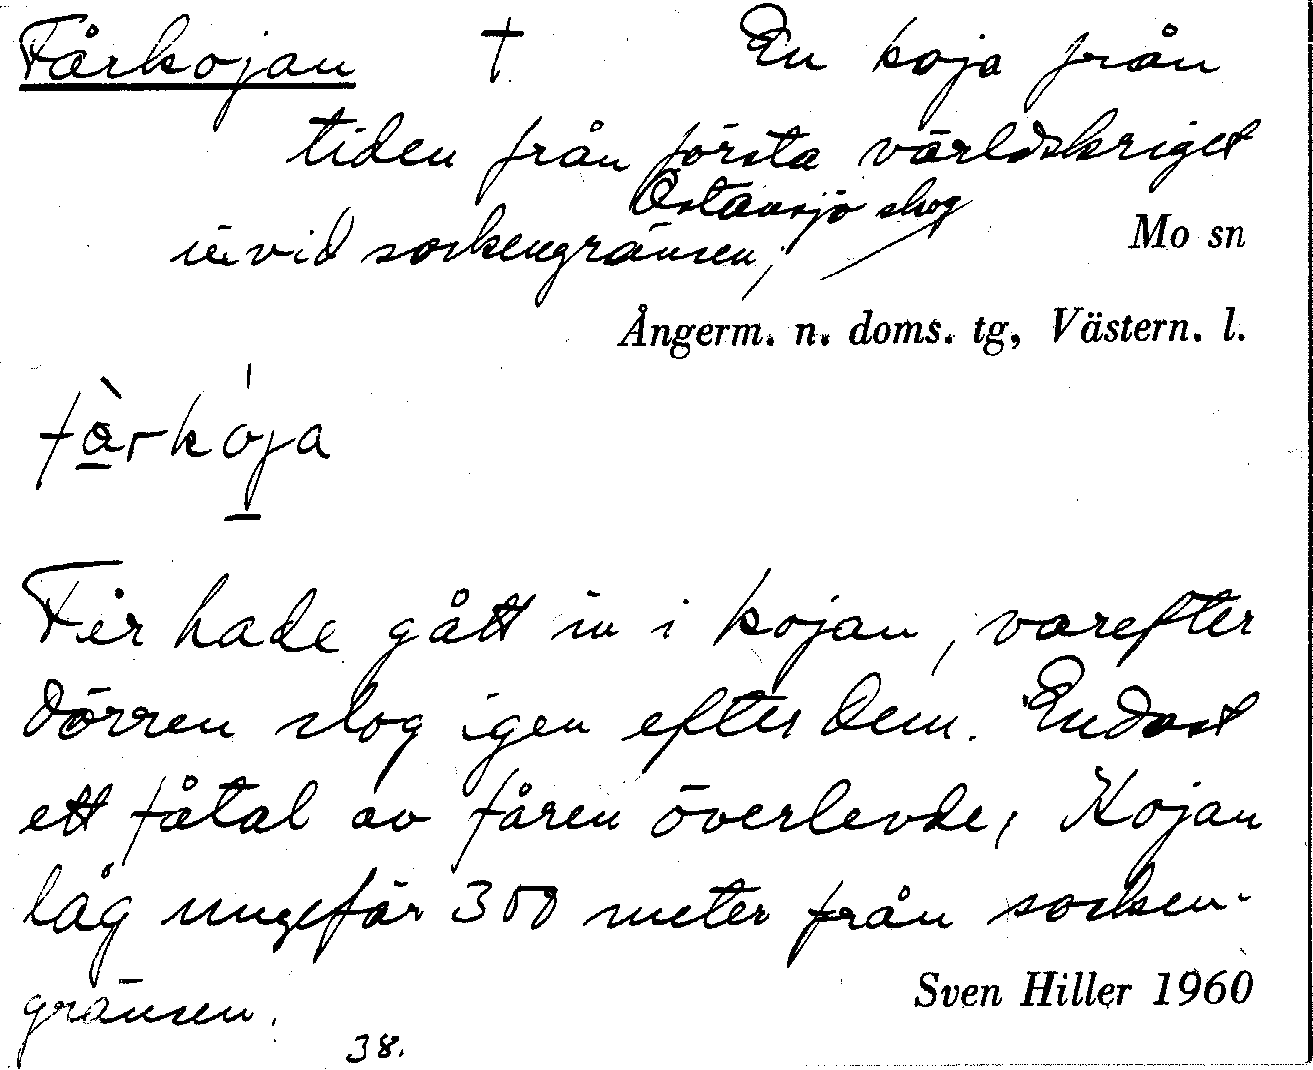 Fårkojan † En koja från
tiden från första världskriget
invid sockengränsen, Östansjö skog
Mo sn
Ångerm. n. doms. tg, Västern. l.
fårkója
Får hade gått in i kojan, varefter
dörren slog igen efter dem. Endast
ett fåtal av fåren överlevde, Kojan
låg ungefär 300 meter från socken-
gränsen.
Sven Hiller 1960
38.